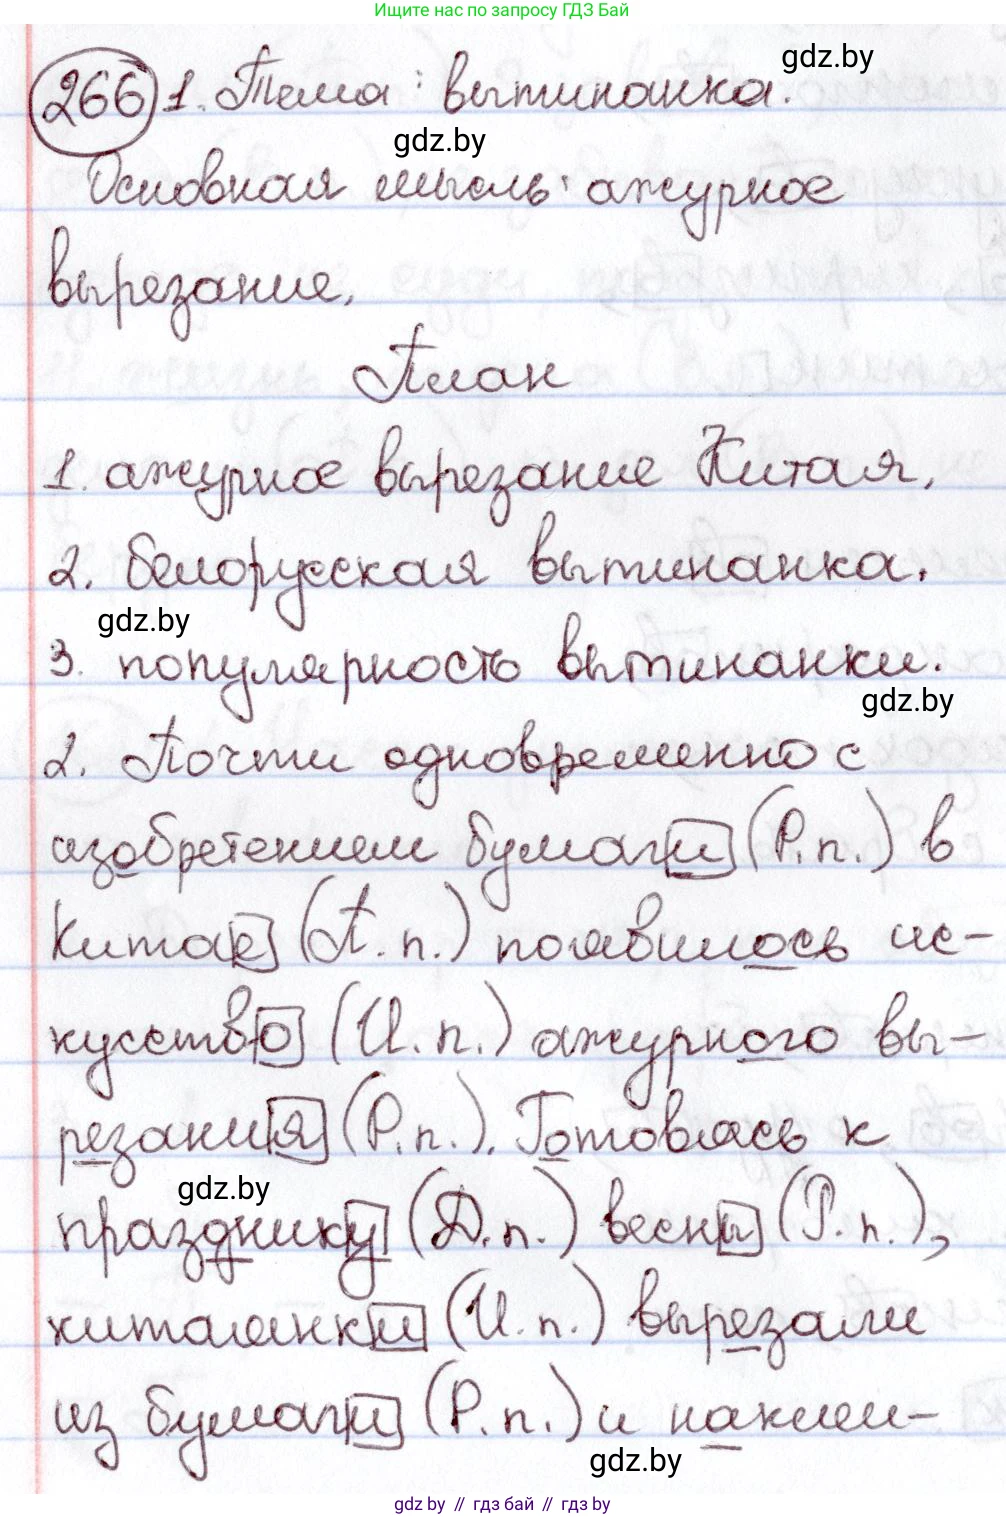 Ищите нас по запросу ГДЗ Бай
gdz.by
266 1. Тема: вытинанка.
gdz.by
Основная мысль: ажурное
вырезание.
План
1. ажурное вырезание Китая.
2. белорусская вытинанка.
gdz.by
3. популярность вытинанки.
gdz.by
2. Почти одновременно с
изобретением бумаги (Р.п.) в
Китае (П.п.) появилось ис-
кусство (И.п.) ажурного вы-
резания (Р.п.). Готовясь к
gdz.by
празднику (Д.п.) весны (Р.п.),
китаянки (И.п.) вырезали
из бумаги (Р.п.) и наклеи-
gdz.by
gdz by // гдз бай // гдз by